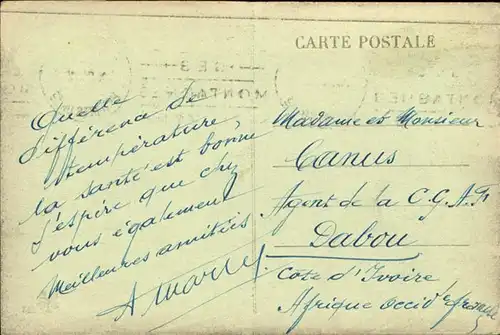 CARTE POSTALE
Quelle
différence de
température,
la santé est bonne
j'espère que chez
vous également
Meilleures amitiés
Madame et Monsieur
Canus
Agent de la C.G.A.F
Dabou
Côte d'Ivoire
Afrique Occid le française